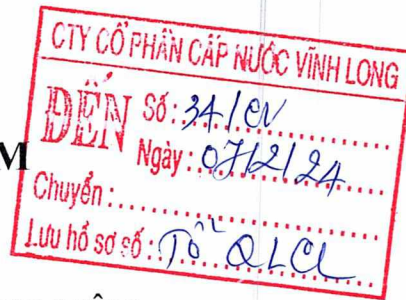 CTY CỔ PHẦN CẤP NƯỚC VĨNH LONG
ĐẾN
Số: 34/CV
Ngày: 07/2/24
M
Chuyển:
Lưu hồ sơ số: Tổ QLCL